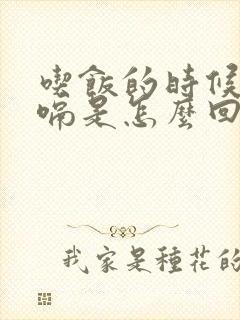 喫飯的時候
嗝是怎麼回
我家是種花的